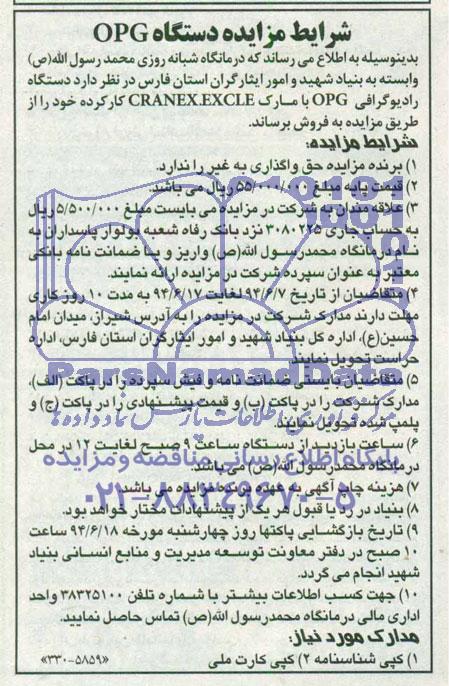 شرایط مزایده دستگاه OPG
بدینوسیله به اطلاع می رساند که درمانگاه شبانه روزی محمد رسول الله(ص)
وابسته به بنیاد شهید و امور ایثارگران استان فارس در نظر دارد دستگاه
رادیوگرافی OPG با مارک CRANEX.EXCLE کارکرده خود را از
طریق مزایده به فروش برساند.
شرایط مزایده:
۱) برنده مزایده حق واگذاری به غیر را ندارد.
۲) قیمت پایه مبلغ ۵۵/۰۰۰/۰۰۰ ریال می باشد.
۳) علاقه مندان به شرکت در مزایده می بایست مبلغ ۵/۵۰۰/۰۰۰ ریال
به حساب جاری ۳۰۸۰۲۲۵ نزد بانک رفاه شعبه بولوار پاسداران به
نام درمانگاه محمدرسول الله(ص) واریز و یا ضمانت نامه بانکی
معتبر به عنوان سپرده شرکت در مزایده ارائه نمایند.
۴) متقاضیان از تاریخ ۹۴/۶/۷ لغایت ۹۴/۶/۱۷ به مدت ۱۰ روز کاری
مهلت دارند مدارک شرکت در مزایده را به آدرس شیراز، میدان امام
حسین(ع)، اداره کل بنیاد شهید و امور ایثارگران استان فارس، اداره
حراست تحویل نمایند.
ParsNamadData
۵) متقاضیان بایستی ضمانت نامه و فیش سپرده را در پاکت (الف)،
مدارک شرکت را در پاکت (ب) و قیمت پیشنهادی را در پاکت (ج) و
پلمپ شده تحویل نمایند.
۶) ساعت بازدید از دستگاه ساعت ۹ صبح لغایت ۱۲ در محل
درمانگاه محمدرسول الله(ص) می باشد.
پایگاه اطلاع رسانی مناقصه و مزایده
۷) هزینه چاپ آگهی به عهده برنده مزایده می باشد.
۰۲۱-۸۸۳۴۹۶۷۰-۵
۸) بنیاد در رد یا قبول هر یک از پیشنهادات مختار خواهد بود.
۹) تاریخ بازگشایی پاکتها روز چهارشنبه مورخه ۹۴/۶/۱۸ ساعت
۱۰ صبح در دفتر معاونت توسعه مدیریت و منابع انسانی بنیاد
شهید انجام می گردد.
۱۰) جهت کسب اطلاعات بیشتر با شماره تلفن ۳۸۳۲۵۱۰۰ واحد
اداری مالی درمانگاه محمدرسول الله(ص) تماس حاصل نمایید.
مدارک مورد نیاز:
۱) کپی شناسنامه ۲) کپی کارت ملی
«۳۳۰-۵۸۵۹»